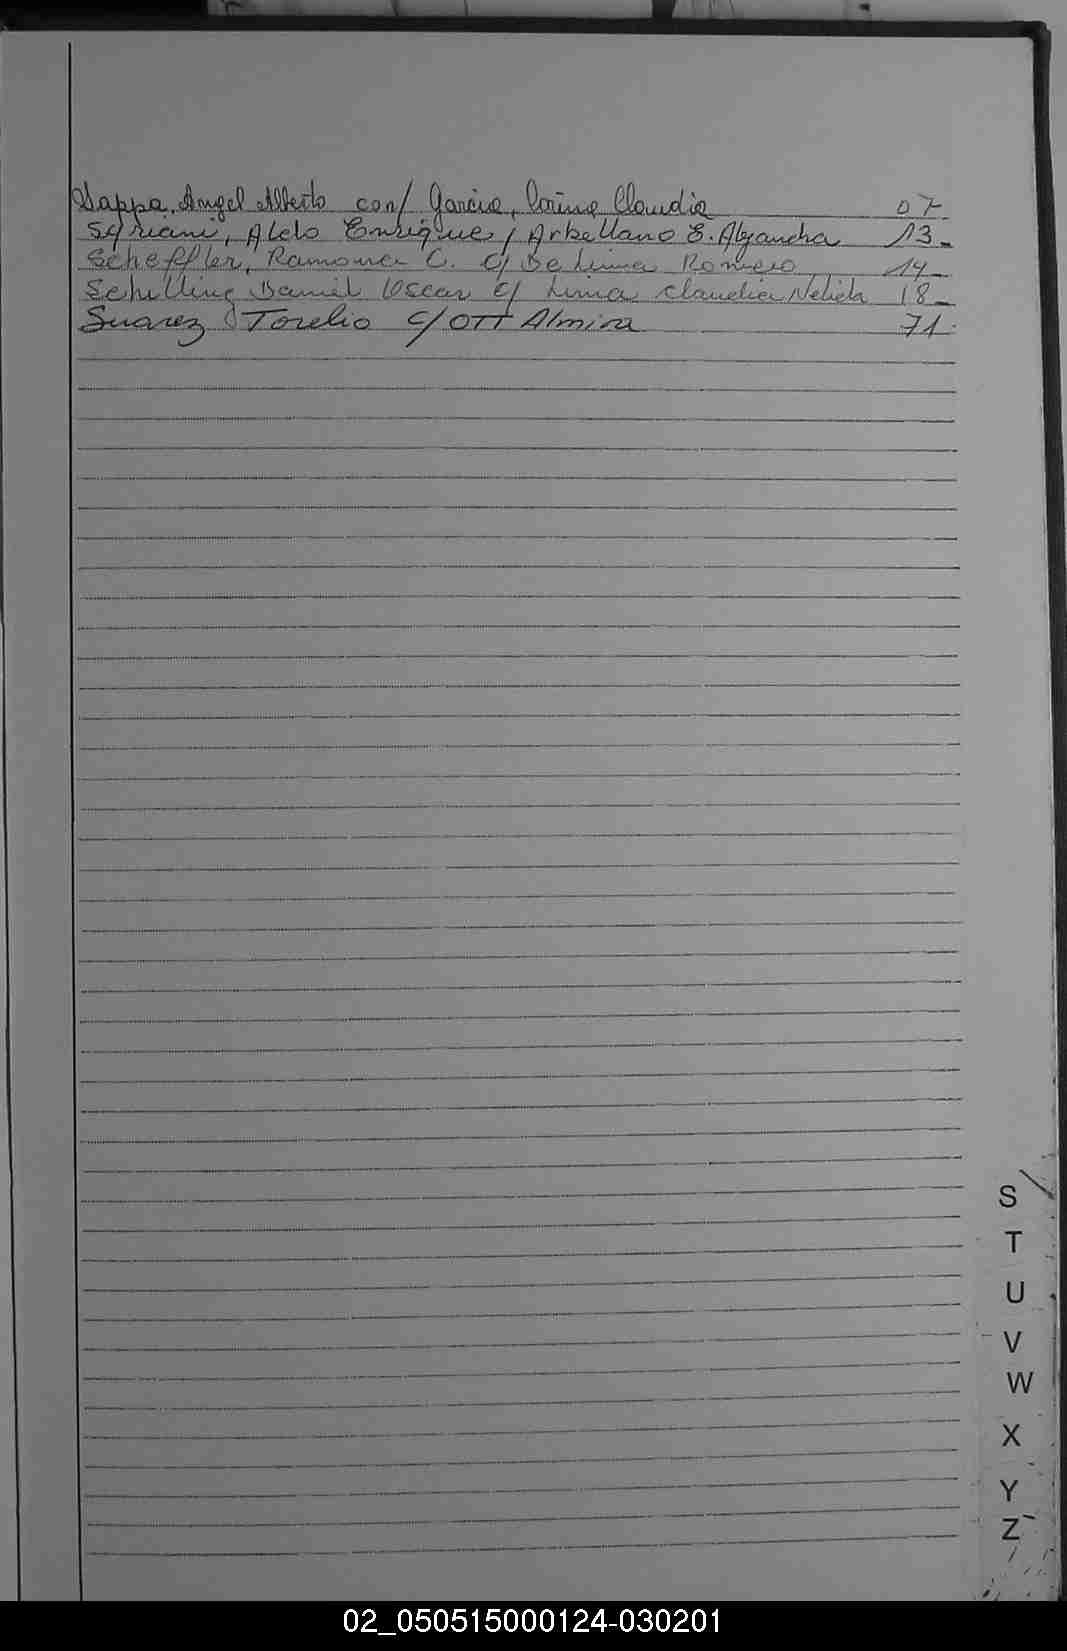 Sappa, Angel Alberto con/ Garcia, Corina Claudia 07
Soriani, Aldo Enrique c/ Arbellano E. Alejandra 13-
Scheffler, Ramona C. c/ De Lima Romero 14-
Schilling Daniel Oscar c/ Lima Claudia Nelida 18-
Suarez Torelio c/ OTT Almira 71.
S
T
U
V
W
X
Y
Z
02_050515000124-030201